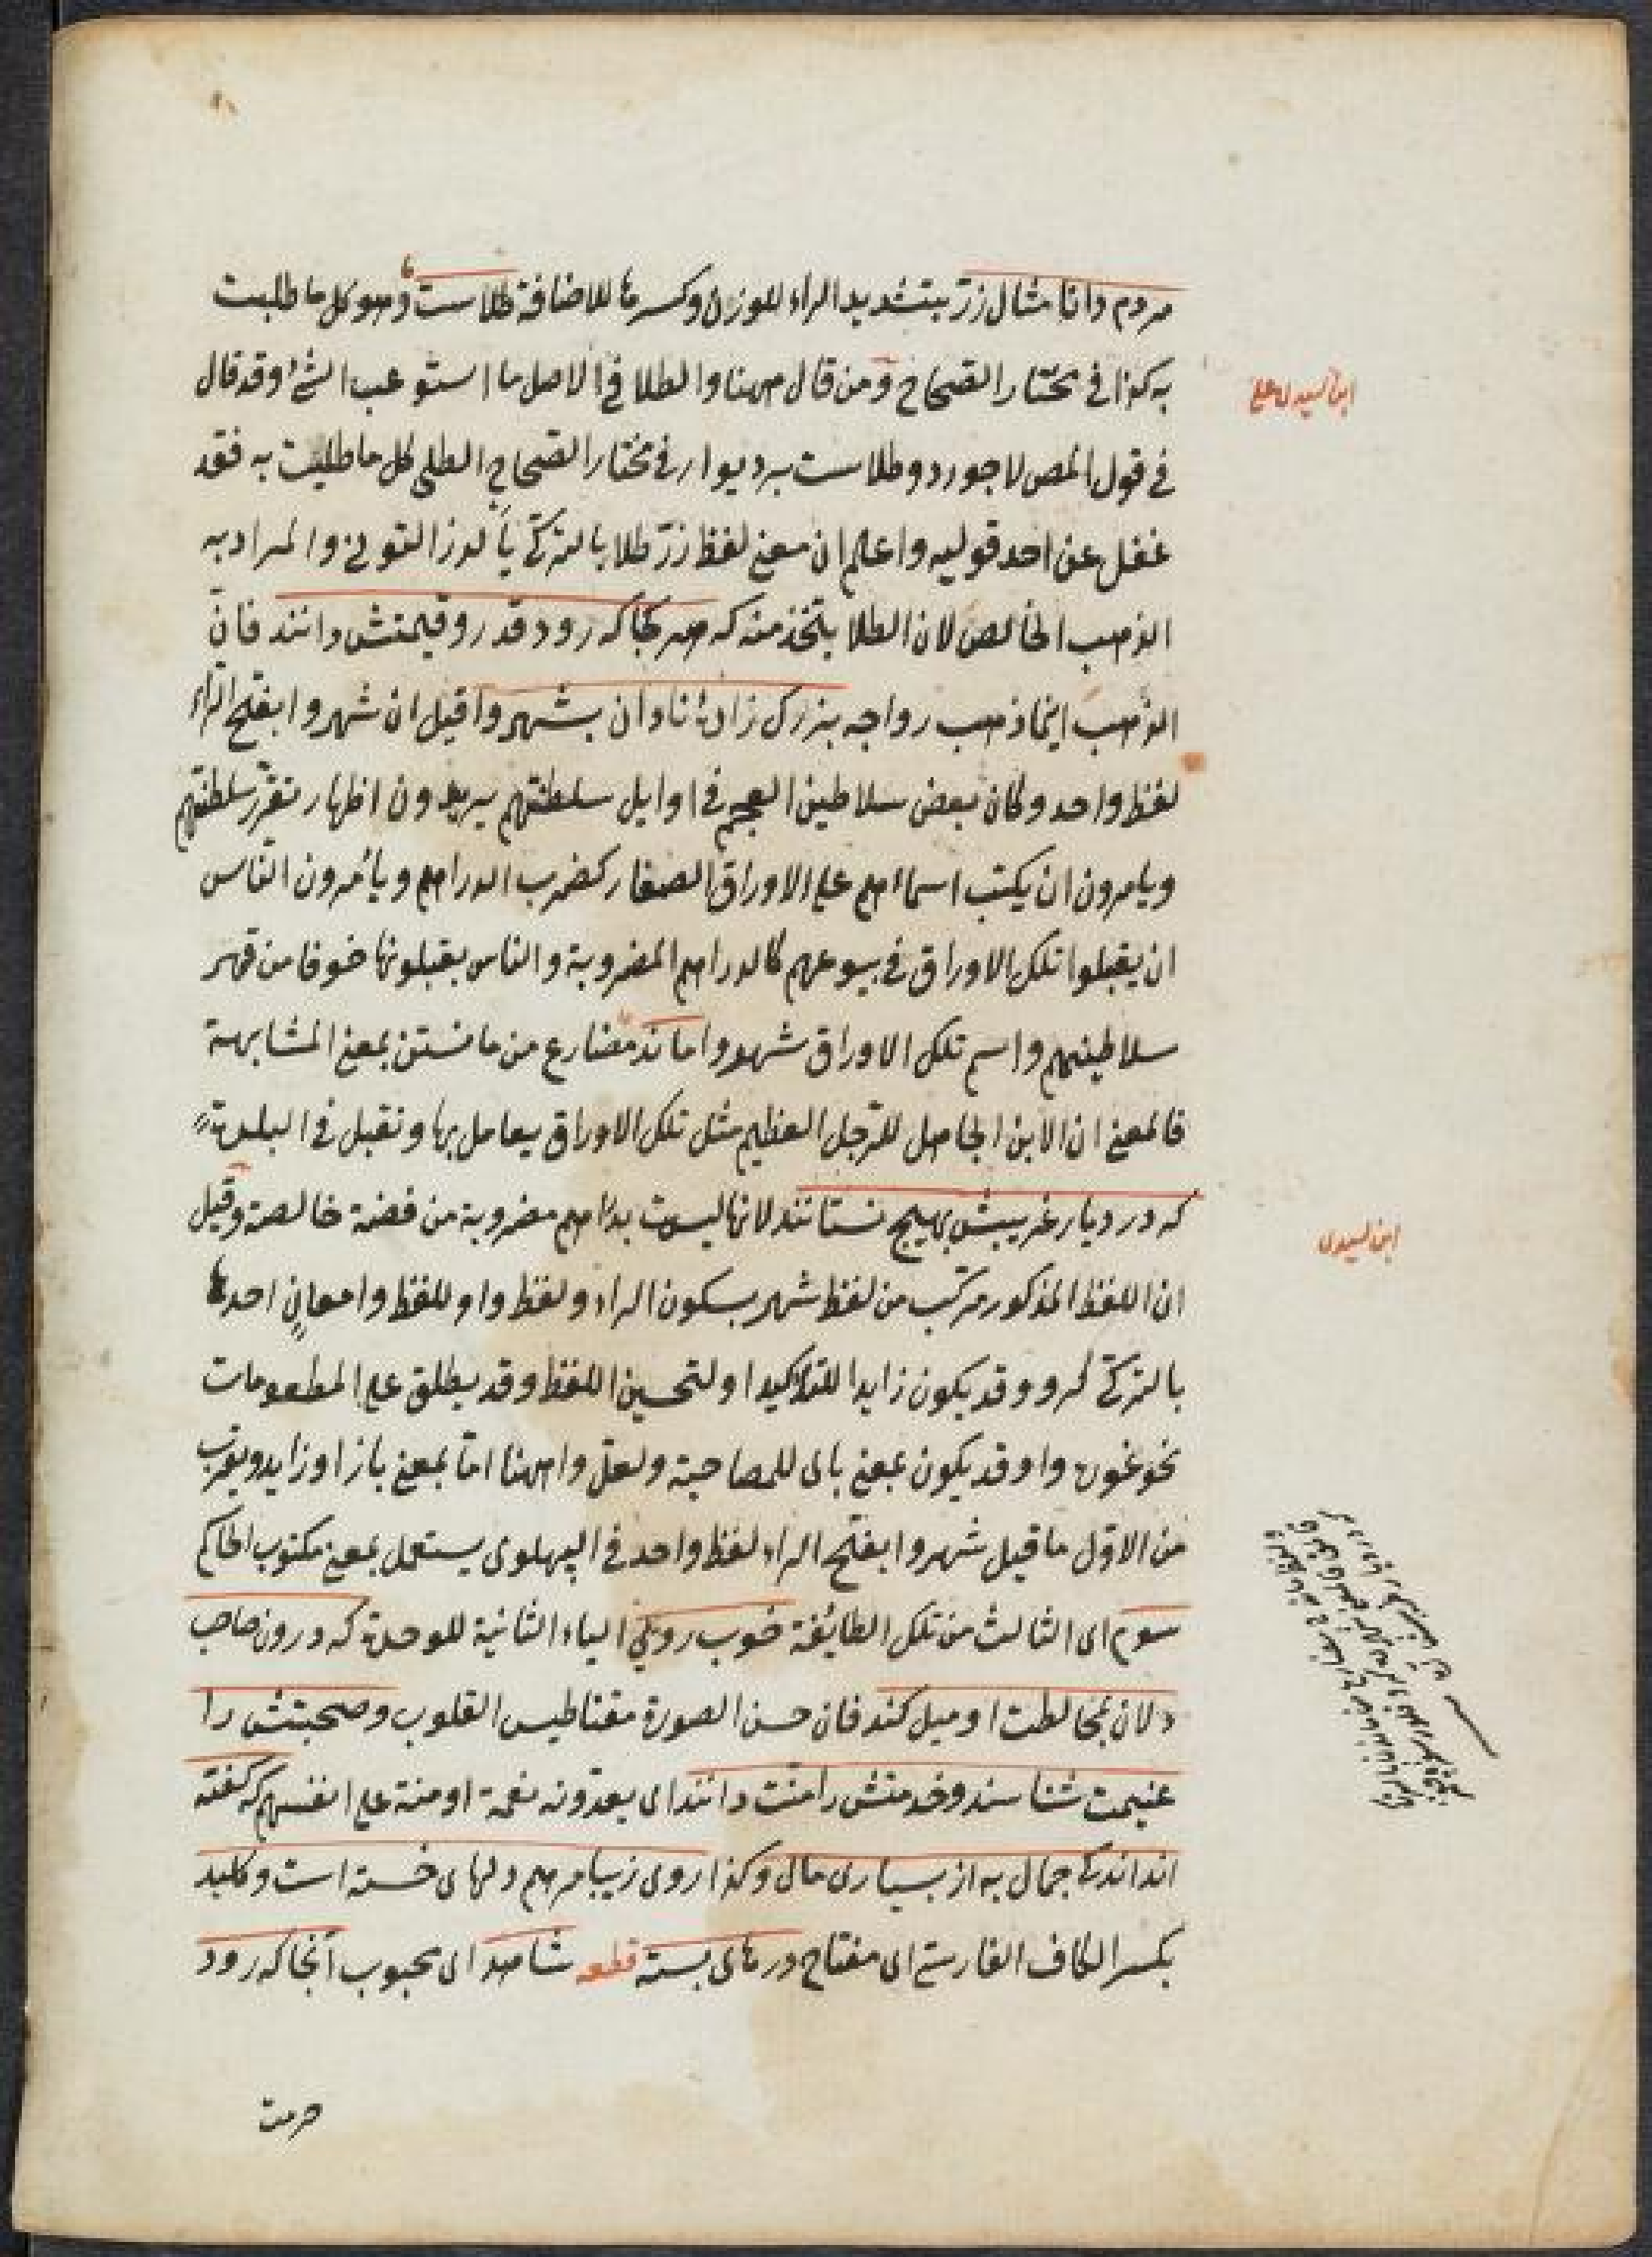 مردم دانا مثال زرّ بتشديد الراء للوزن وكسرها للاضافة طلاست وهو كل ما طليت
به كذا فى مختار الصحاح ومن قال ههنا والطلا فى الاصل ما استوعب الشئ وقد قال
فى قول المص لاجورد وطلاست بر ديوار فى مختار الصحاح الطلى كل ما طليت به فقد
غفل عن احد قوليه واعلم ان معنى لفظ زرّ طلا بالتركى يالدز التونى والمراد به
الذهب الخالص لان الطلا يتخذ منه كه هر كجا كه رود قدر وقيمتش دانند فانّ
الذهب اينما ذهب رواجه بزرك زادۀ نادان بشهروا قيل ان شهروا بفتح الراء
لفظ واحد وكان بعض سلاطين العجم فى اوايل سلطنتهم يريدون اظهار تقرر سلطنتهم
ويامرون ان يكتب اسماءهم على الاوراق الصغار كضرب الدراهم ويأمرون الناس
ان يقبلوا تلك الاوراق فى بيوعهم كالدراهم المضروبة والناس يقبلونها خوفا من قهر
سلاطينهم واسم تلك الاوراق شهروا ماند مضارع من مانستن بمعنى المشابهة
فالمعنى ان الابن الجاهل للرّجل العظيم مثل تلك الاوراق يعامل بها وتقبل فى البلدة
كه در ديار غريبش بهيچ نستانند لانها ليست بدراهم مضروبة من فضة خالصة وقيل
ان اللفظ المذكور مركّب من لفظ شهر بسكون الراء ولفظ وا وللفظ وا معانٍ احدها
بالتركى كرو وقد يكون زايدا للتأكيد او لتحسين اللفظ وقد يطلق على المطعومات
نحو نخود وا وقد يكون بمعنى باى للمصاحبة ولعلّ وا ههنا امّا بمعنى باز او زايد ويقرب
من الاوّل ما قيل شهروا بفتح الراء لفظ واحد فى البهلوى يستعمل بمعنى مكتوب الحاكم
سوم اى الثالث من تلك الطائفة خوب رويى الياء الثانية للوحدة كه درون صاحب
دلان بمخالطت او ميل كند فان حسن الصورة مقناطيس القلوب وصحبتش را
غنيمت شناسند وخدمتش را منّت دانند اى يعدّونه نعمة او منة على انفسهم كه كفته
اند اندكى جمال به از بسيارى مال وكذا روى زيبا مرهم دلهاى خسته است وكليد
بكسر الكاف الفارسىّ اى مفتاح درهاى بسته قطعه شاهد اى محبوب آنجا كه رود
حرمت
ابن السيدى على
ابن السيدى